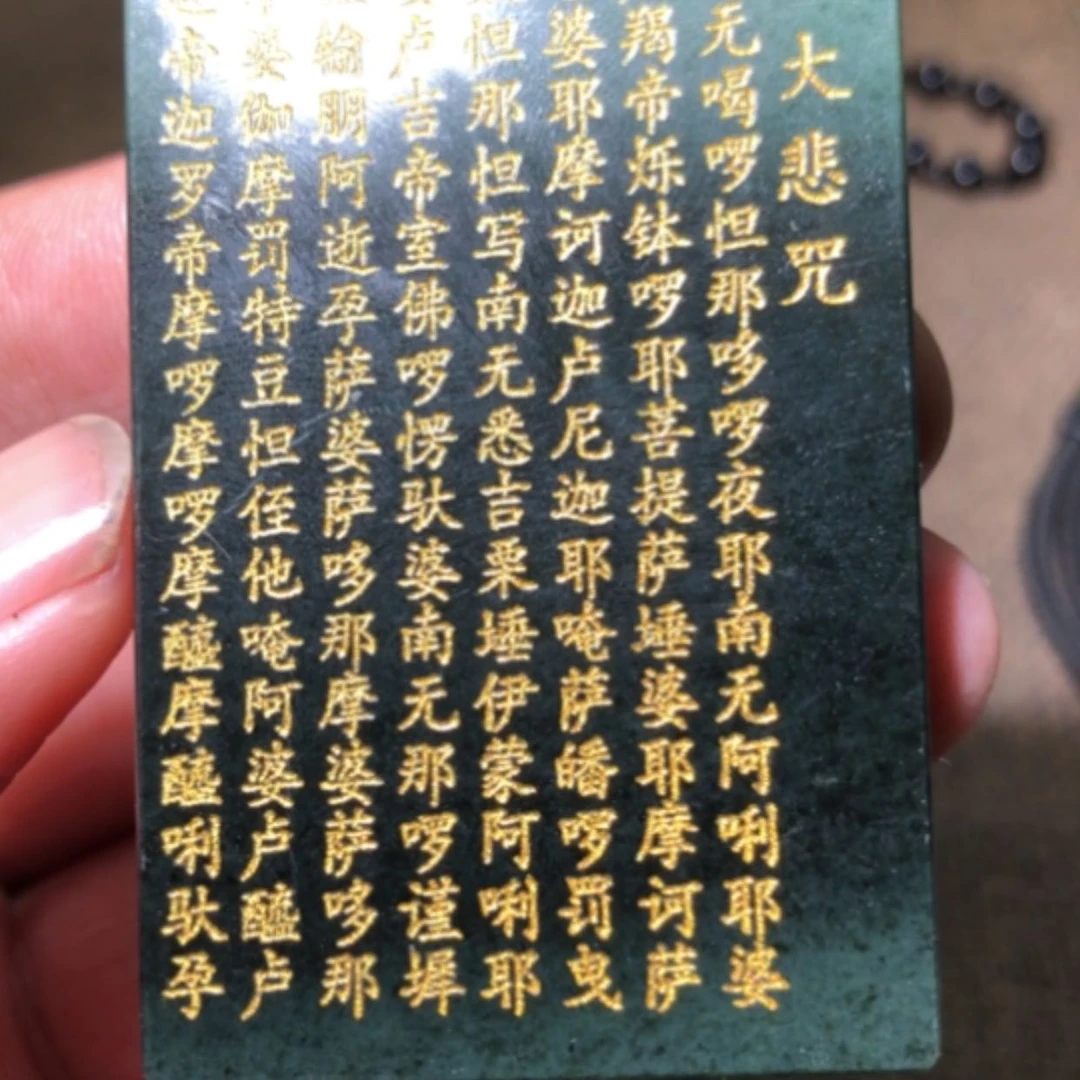 大悲咒
无喝啰怛那哆啰夜耶南无阿唎耶婆
羯帝烁钵啰耶菩提萨埵婆耶摩诃萨
婆耶摩诃迦卢尼迦耶唵萨皤啰罚曳
怛那怛写南无悉吉栗埵伊蒙阿唎耶
卢吉帝室佛啰愣驮婆南无那啰谨墀
输朋阿逝孕萨婆萨哆那摩婆萨哆那
婆伽摩罚特豆怛侄他唵阿婆卢醯卢
帝迦罗帝摩啰摩啰摩醯摩醯唎驮孕